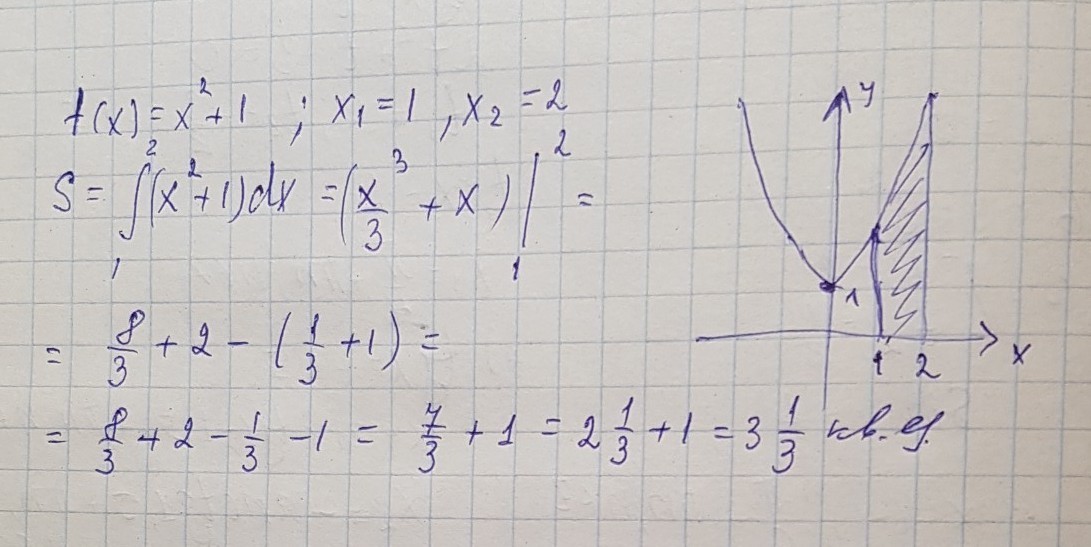 f(x) = x² + 1 ; x₁ = 1 , x₂ = 2
S = ∫₁² (x² + 1) dx = (x³/3 + x) |₁² =
= 8/3 + 2 - (1/3 + 1) =
= 8/3 + 2 - 1/3 - 1 = 7/3 + 1 = 2 1/3 + 1 = 3 1/3 кв. ед.
y
1
1 2 x